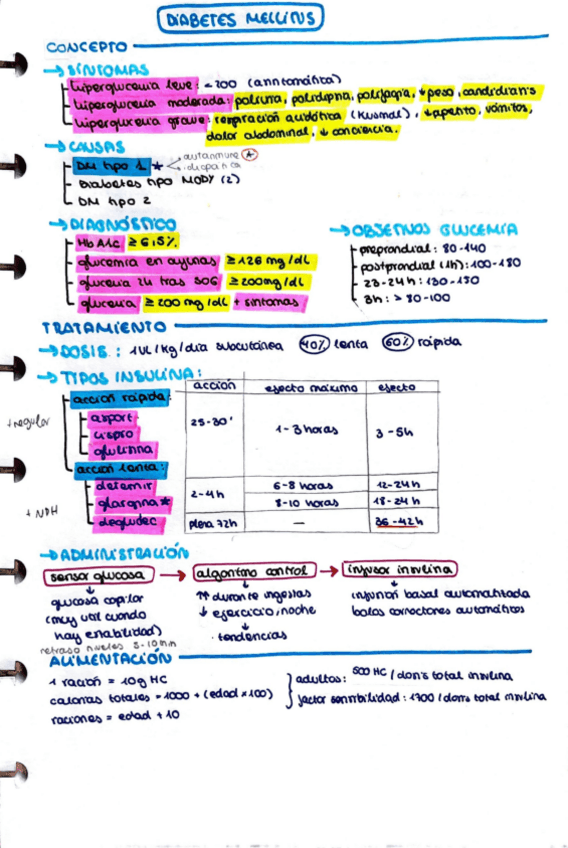 DIABETES MELLITUS
CONCEPTO
→ SÍNTOMAS
hiperglucemia leve: ~200 (asintomática)
hiperglucemia moderada: poliuria, polidipsia, polifagia, ↓peso, candidiasis
hiperglucemia grave: respiración acidótica (Kusmal), ↓apetito, vómitos,
dolor abdominal, ↓ conciencia.
→ CAUSAS
DM tipo 1 ★ autoinmune A
idiopática
Diabetes tipo MODY (2)
DM tipo 2
→ DIAGNÓSTICO
Hb A1c ≥ 6,5%
glucemia en ayunas ≥ 126 mg/dL
glucemia 2h tras SOG ≥ 200mg/dL
glucemia ≥ 200 mg/dL + síntomas
→ OBJETIVOS GLUCEMIA
preprandial: 80-140
postprandial (1h): 100-180
23-24h: 130-150
3h: > 80-100
TRATAMIENTO
→ DOSIS: 1UI/Kg/día subcutánea 40% lenta 60% rápida
→ TIPOS INSULINA:
acción efecto máximo efecto
acción rápida:
+regular
aspart
lispro
glulisina
25-30' 1-3 horas 3-5h
acción lenta:
+ NPH
detemir
glargina ★
degludec
2-4h 6-8 horas 12-24h
8-10 horas 18-24h
plena 72h — 36-42h
→ ADMINISTRACIÓN
sensor glucosa → algoritmo control → infusor insulina
glucosa capilar
(muy útil cuando
hay estabilidad)
retraso niveles 5-10min
↑↑ durante ingestas
↓ ejercicio, noche
· tendencias
infusión basal automatizada
bolos correctores automáticos
ALIMENTACIÓN
1 ración = 10g HC
calorías totales = 1000 + (edad x 100)
raciones = edad + 10
adultos: 500 HC / dosis total insulina
factor sensibilidad: 1700 / dosis total insulina